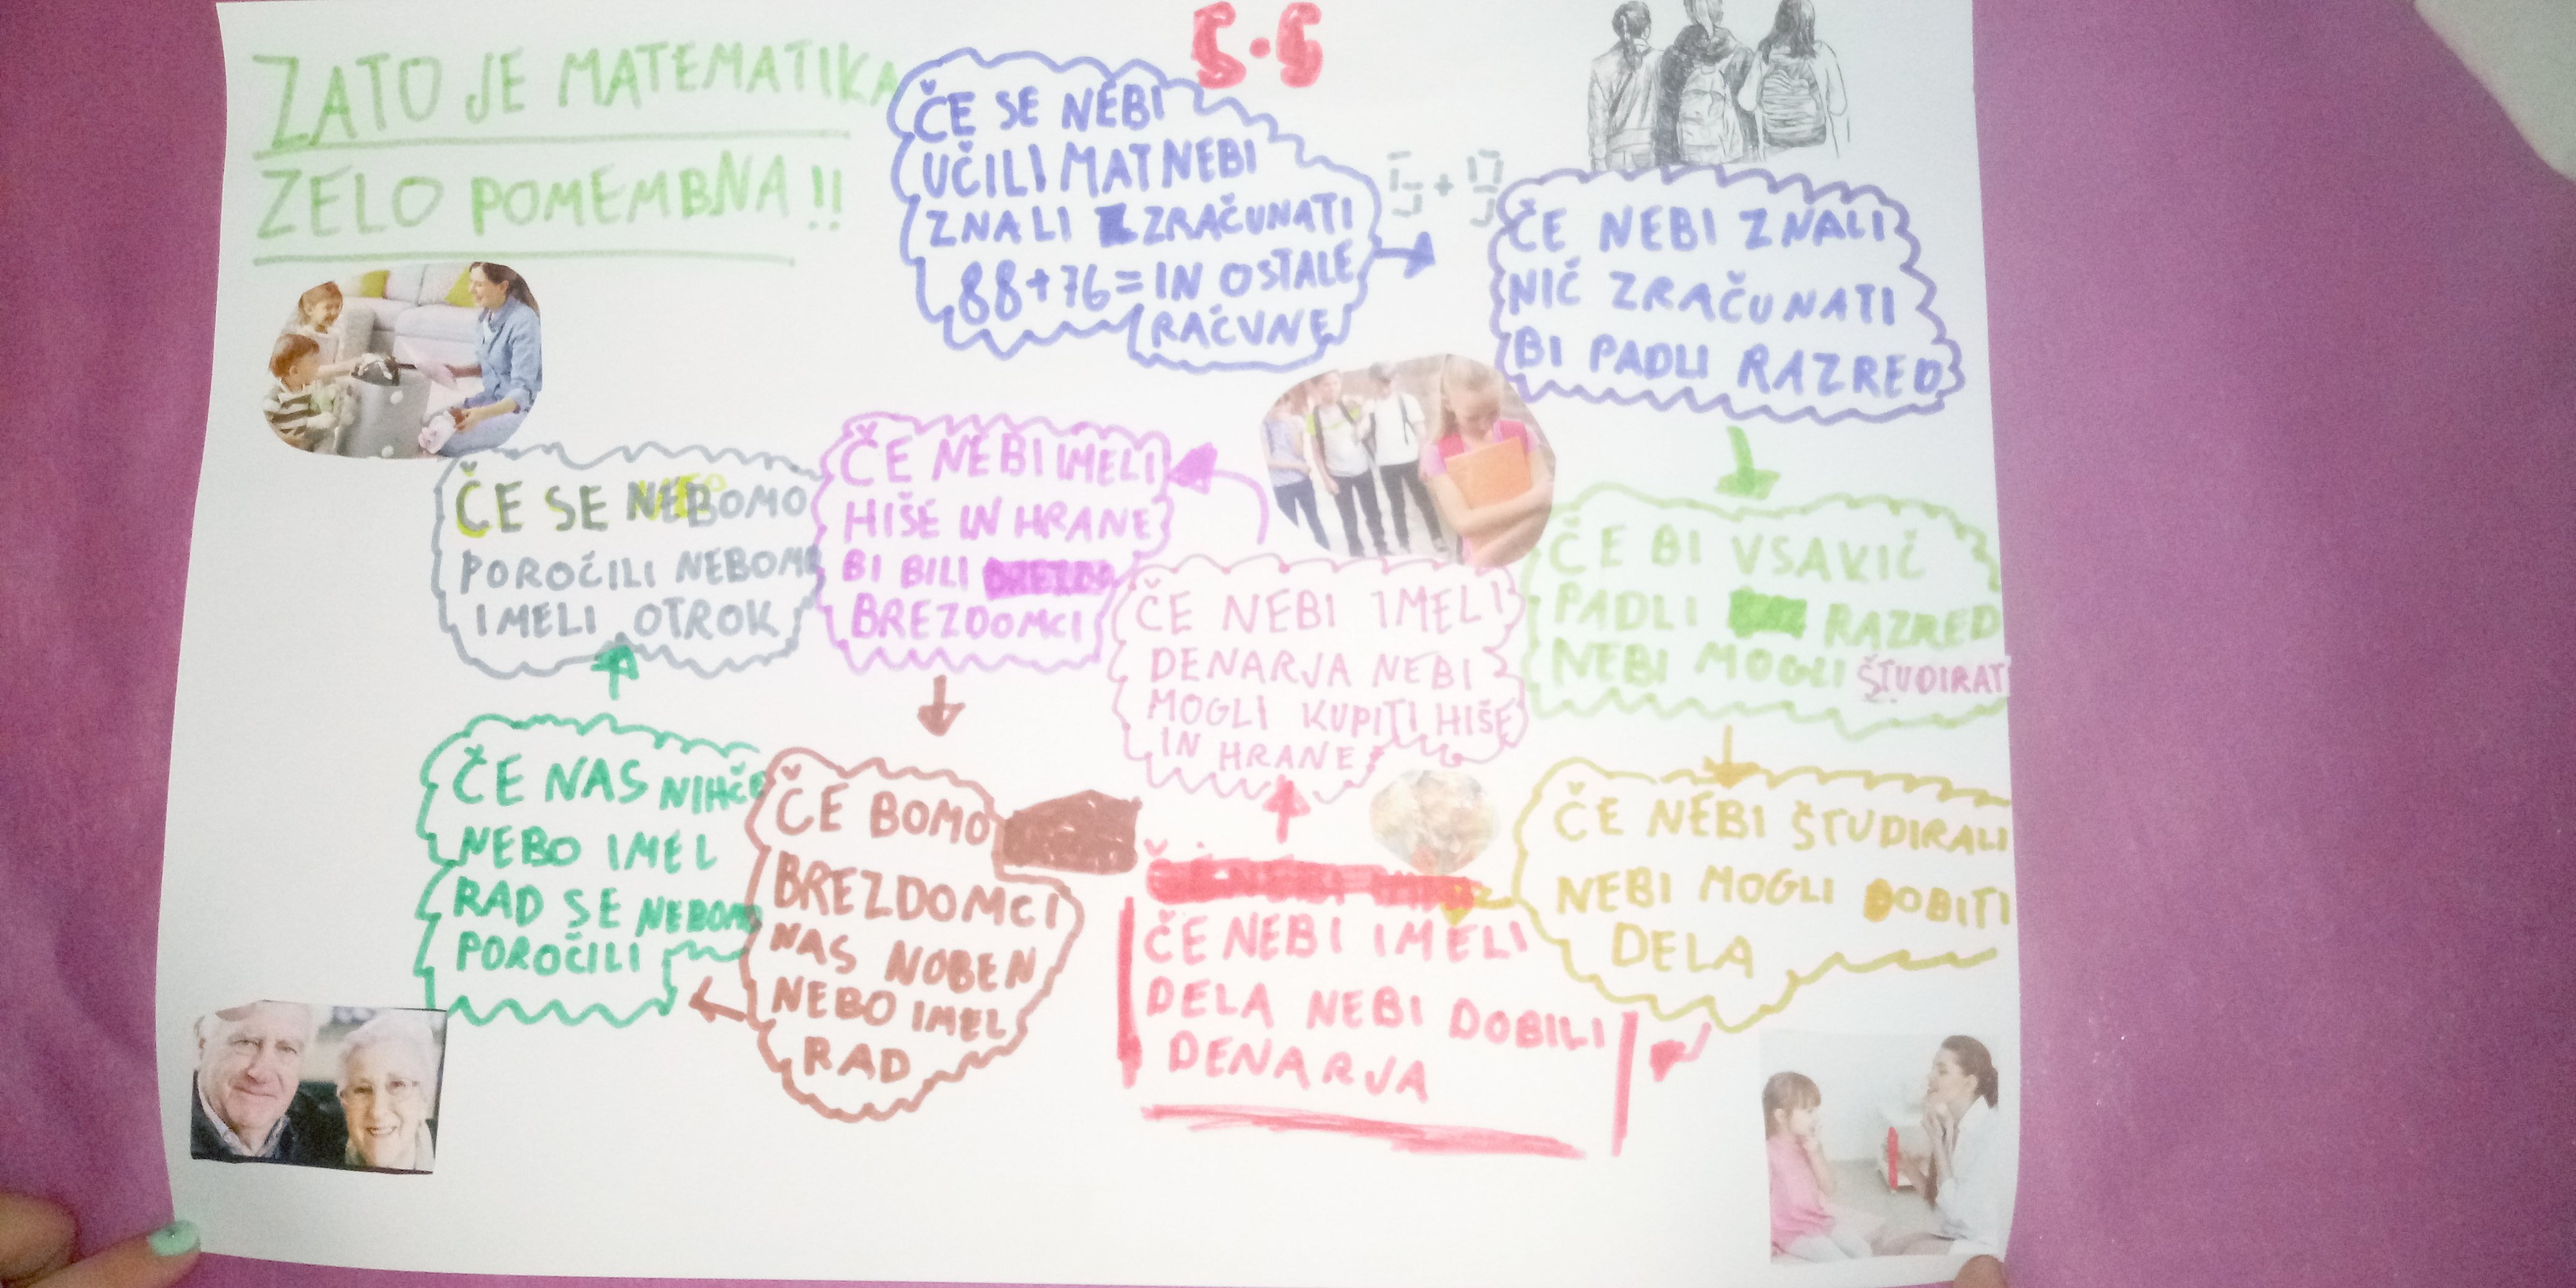 ZATO JE MATEMATIKA
ZELO POMEMBNA!!
5.5
ČE SE NEBI
UČILI MAT NEBI
ZNALI ZRAČUNATI
88+76= IN OSTALE
RAČUNE
ČE NEBI ZNALI
NIČ ZRAČUNATI
BI PADLI RAZRED
ČE BI VSAKIČ
PADLI RAZRED
NEBI MOGLI ŠTUDIRAT
ČE NEBI ŠTUDIRALI
NEBI MOGLI DOBITI
DELA
ČE NEBI IMELI
DELA NEBI DOBILI
DENARJA
ČE NEBI IMELI
DENARJA NEBI
MOGLI KUPITI HIŠE
IN HRANE
ČE NEBI IMELI
HIŠE IN HRANE
BI BILI
BREZDOMCI
ČE BOMO
BREZDOMCI
NAS NOBEN
NEBO IMEL
RAD
ČE NAS NIHČE
NEBO IMEL
RAD SE NEBOMO
POROČILI
ČE SE NEBOMO
POROČILI NEBOMO
IMELI OTROK